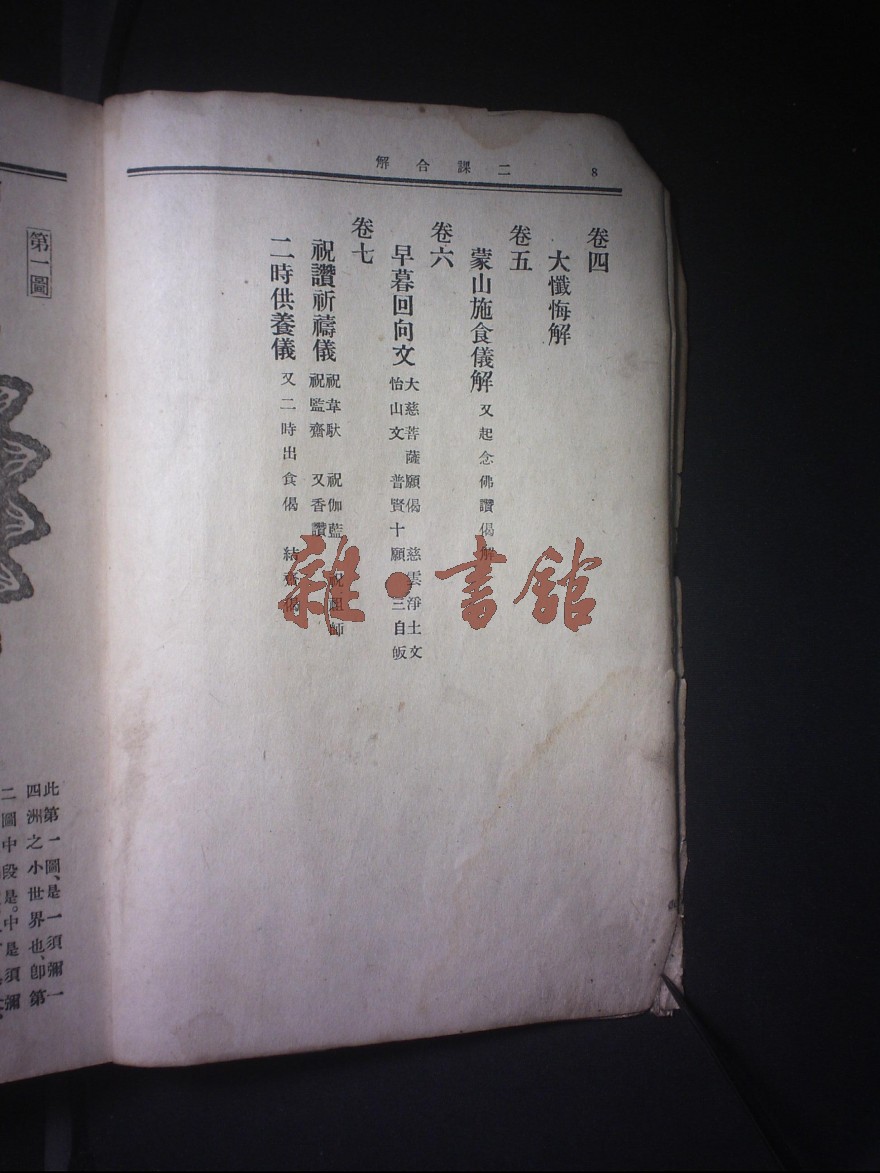 二課合解
8
卷四
大懺悔解
卷五
蒙山施食儀解 又起念佛讚偈解
卷六
早暮回向文 大慈菩薩願偈 慈雲淨土文
怡山文 普賢十願 三自皈
卷七
祝讚祈禱儀 祝韋馱 祝伽藍 祝祖師
祝監齋 又香讚
二時供養儀 又二時出食偈 結齋偈
雜·書館
第一圖
此第一圖、是一須彌一
四洲之小世界也、卽第
二圖中段是。中是須彌